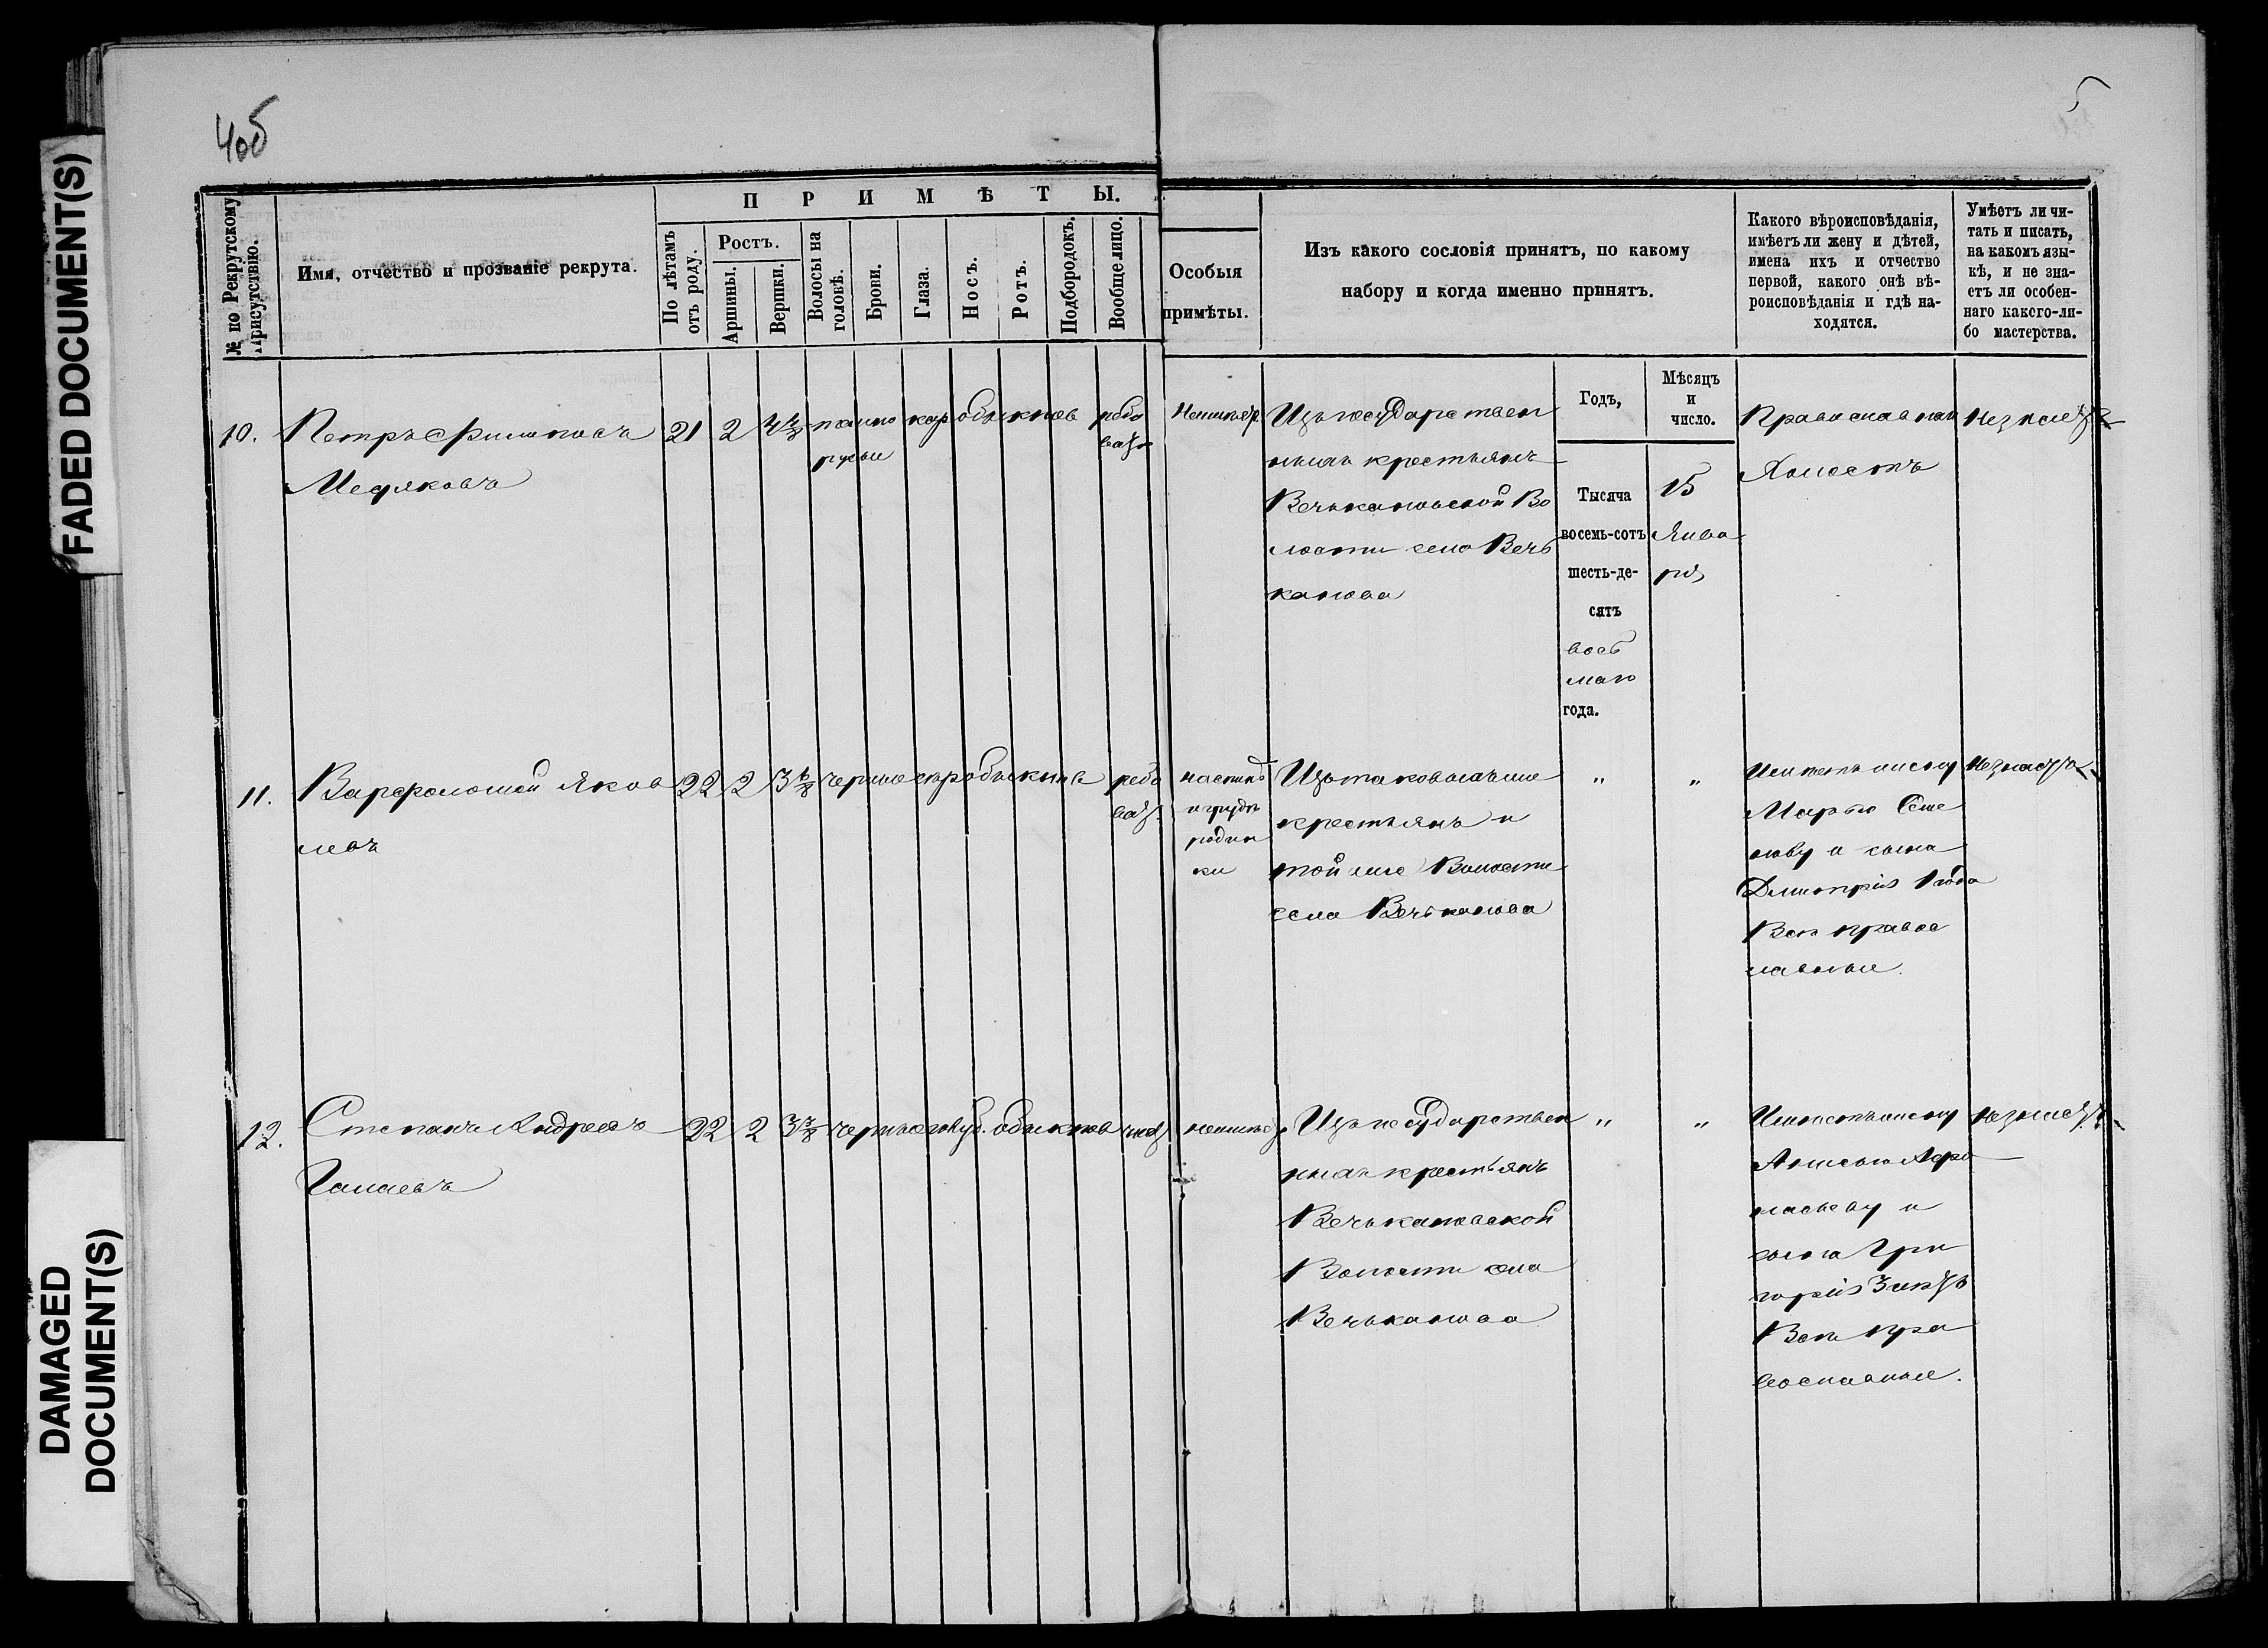 FADED DOCUMENT(S)
DAMAGED
DOCUMENT(S)
4об
5
№ по Рекрутскому
Присутствію.
Имя, отчество и прозваніе рекрута.
ПРИМѢТЫ.
По лѣтамъ
отъ роду.
Ростъ.
Аршины.
Вершки.
Волосы на
головѣ.
Брови.
Глаза.
Носъ.
Ротъ.
Подбородокъ.
Вообще лицо.
Особыя
примѣты.
Изъ какого сословія принятъ, по какому
набору и когда именно принятъ.
Какого вѣроисповѣданія,
имѣетъ ли жену и дѣтей,
имена ихъ и отчество
первой, какого онѣ вѣ-
роисповѣданія и гдѣ на-
ходятся.
Умѣетъ ли чи-
тать и писать,
на какомъ язы-
кѣ, и не зна-
етъ ли особен-
наго какого-ли-
бо мастерства.
Годъ,
Мѣсяцъ
и
число.
10.
Петръ Филиповъ
21 2 темно кар обыкнов рябо
русые
ват
Неимѣе
Изъ государствен
ныхъ крестьянъ
Вечькановской Во
лости села Вечь
канова
Тысяча
восемь-сотъ
шесть-де-
сятъ
вось
маго
года.
15
Янва
ря
Православнаго
Холостъ
Незнае
11.
Варфоломей Яков
левъ
22 2 черные сер обыкнов рябо
ват
на спинѣ
и груди
родин
ки
Изъ таковыхъ же
крестьянъ и
той же Волости
села Вечьканова
" "
Имѣетъ жену
Марью Семе
нову и сына
Дмитрія 1 года
Всѣ правос
лавные.
Незнае
12.
Степанъ Андреевъ
Галаевъ
22 2 3 3/8 черные голуб. обыкнов чист
неимѣе
Изъ государствен
ныхъ крестьянъ
Вечькановской
Волости села
Вечьканова
" "
Имѣетъ жену
сына Гри
горія
Всѣ пра
вославные.
Незнае